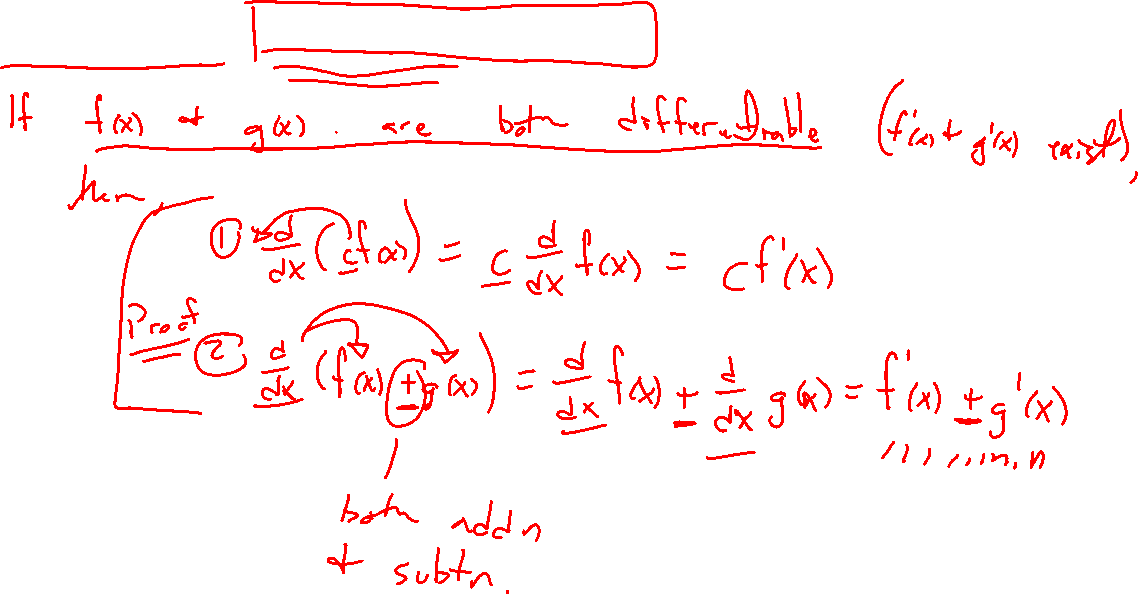 If f(x) + g(x) . are both differentiable (f'(x) + g'(x) exist),
then
① d/dx (cf(x)) = c d/dx f(x) = cf'(x)
Proof
② d/dx (f(x) ± g(x)) = d/dx f(x) ± d/dx g(x) = f'(x) ± g'(x)
both addn
+ subtn.